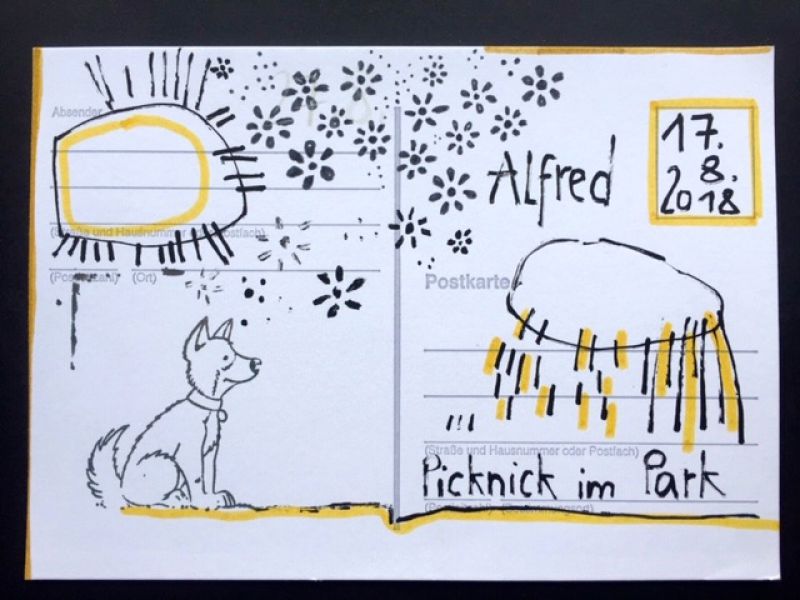 Absender
(Straße und Hausnummer oder Postfach)
(Postleitzahl) (Ort)
Alfred
17.
8.
2018
Postkarte
(Straße und Hausnummer oder Postfach)
Picknick im Park